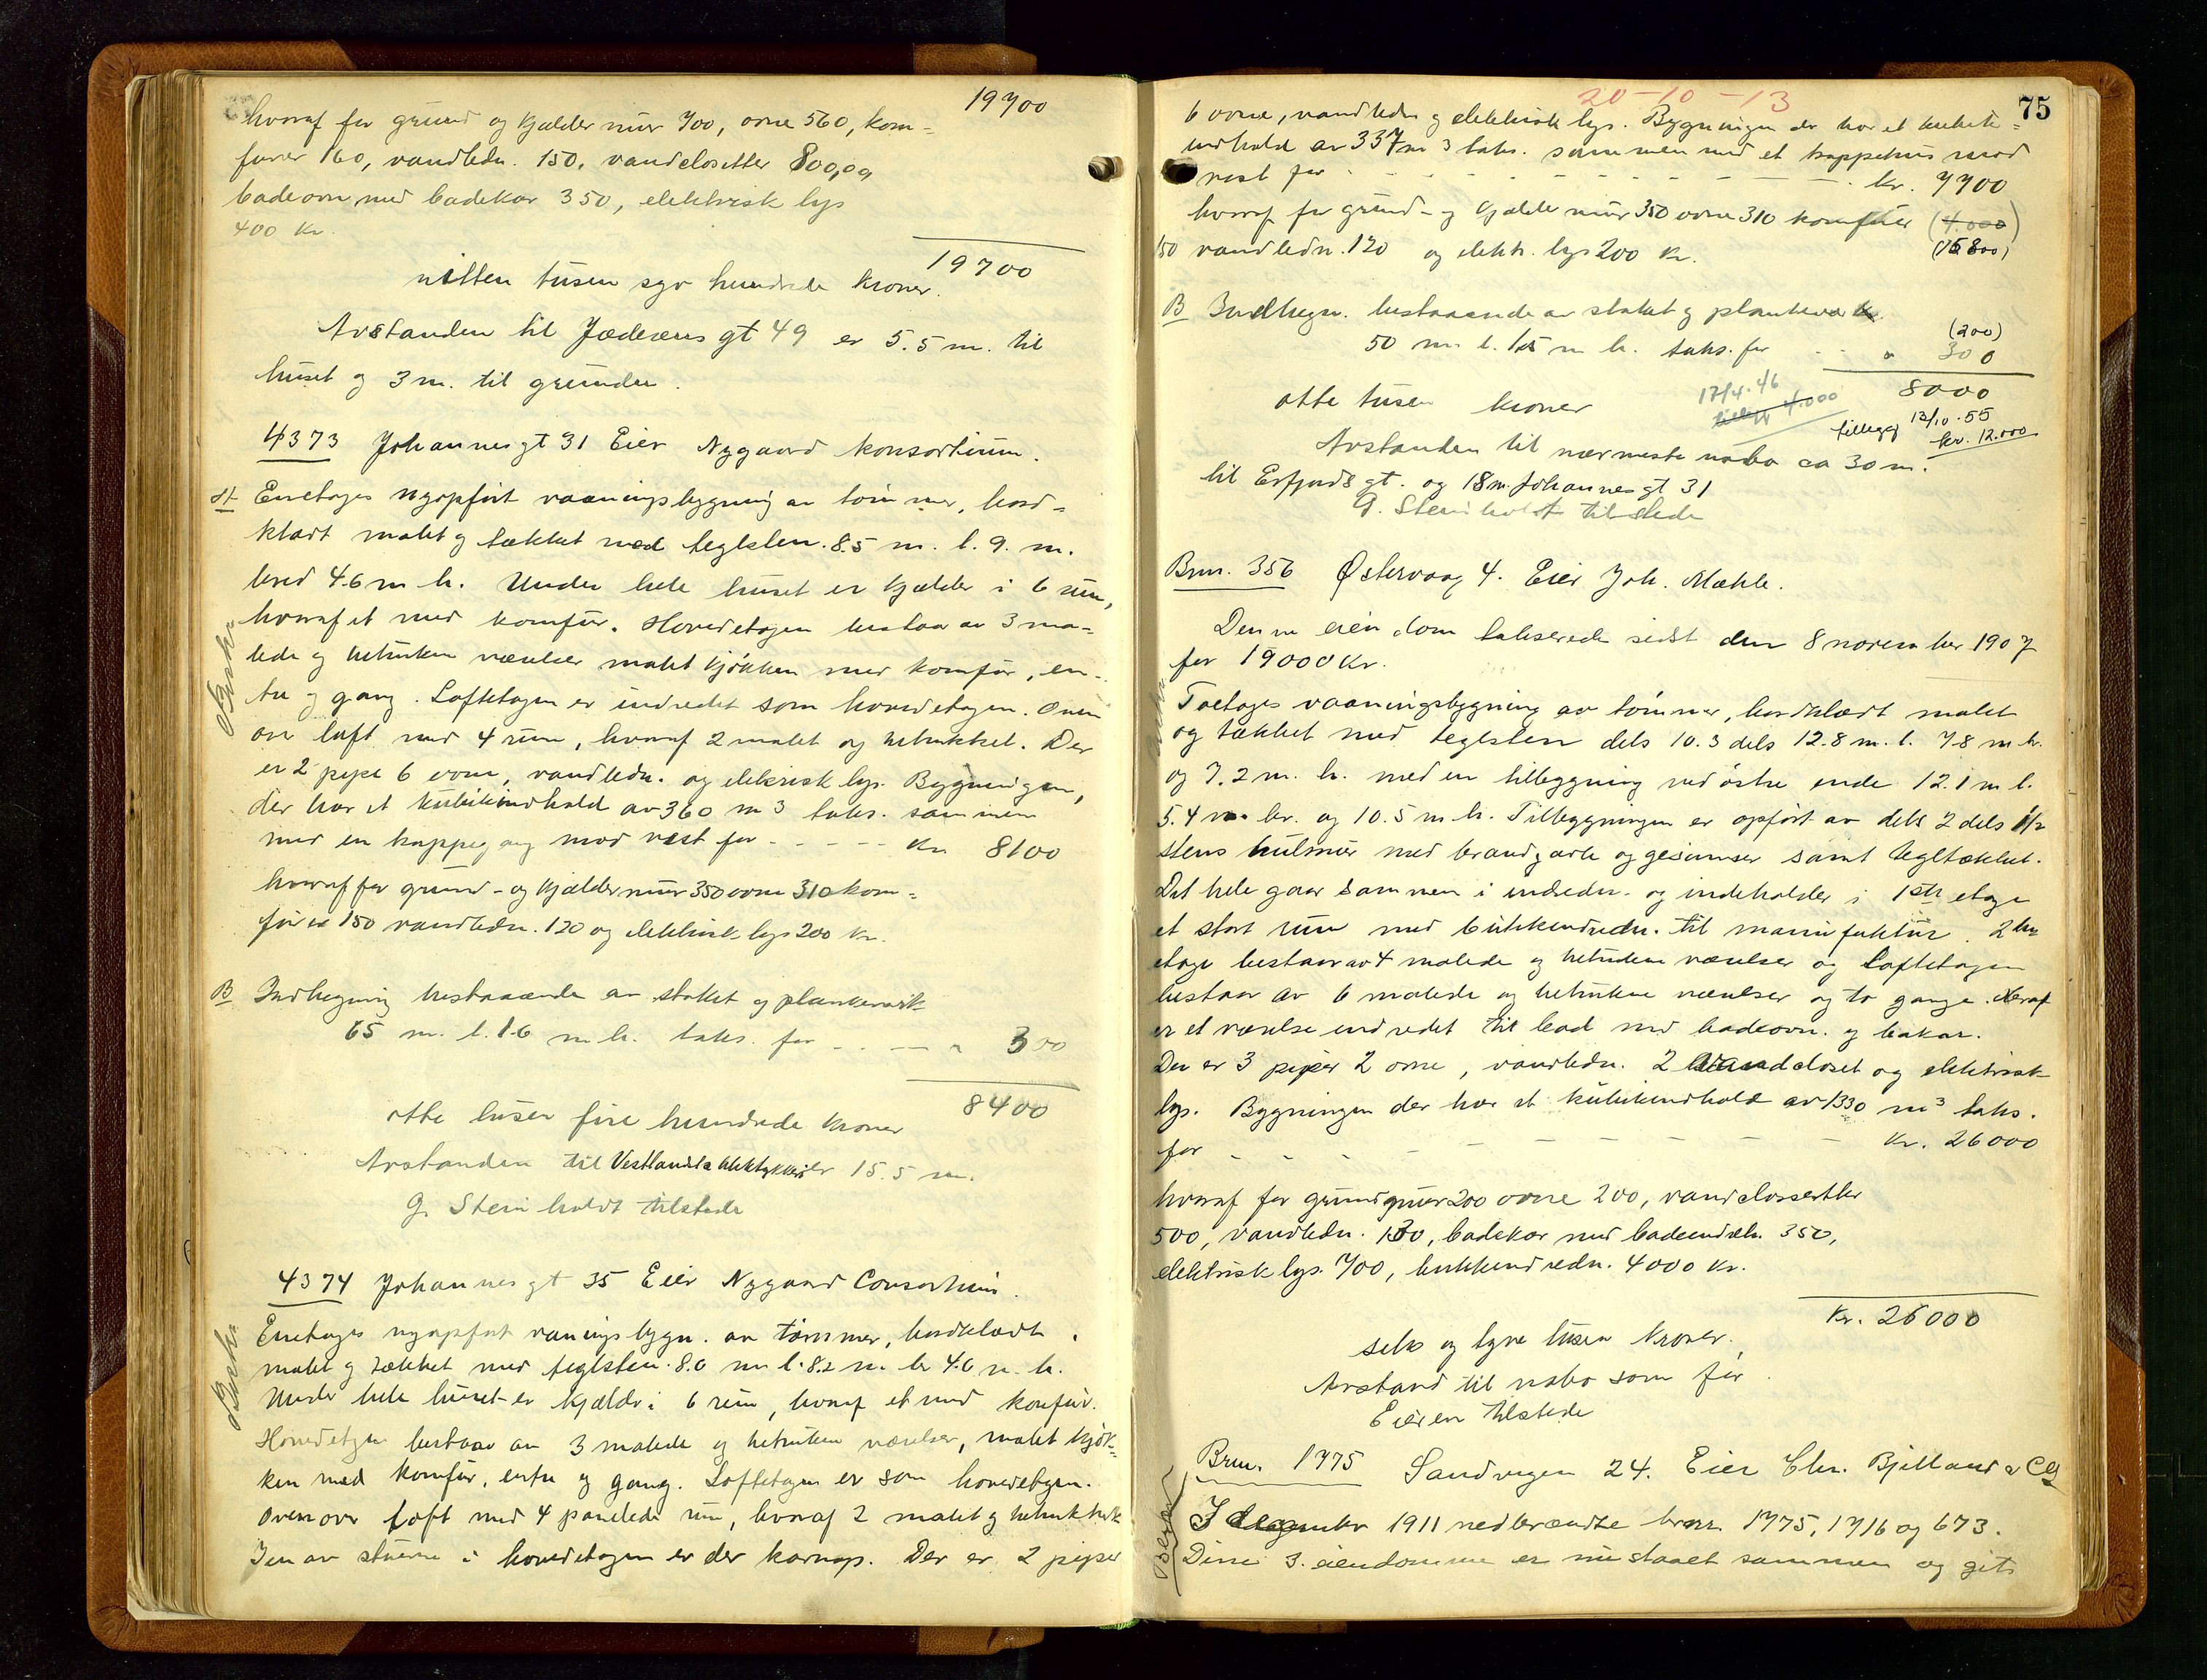 19700
hvoraf for grund og kjælder mur 700, ovne 560, kom-
furer 160, vandledn. 150, vandclosetter 800, og
badeovn med badekar 350, elektrisk lys
400 Kr.
19700
nitten tusen syv hundrede kroner.
Avstanden til Jæderens gt 49 er 5.5 m. til
huset og 3 m. til grunden.
4373 Johannes gt 31 Eier Nygaard Konsortium.
A Enetages nyopført vaaningsbygning av tømmer, bord-
klædt malet og tækket med teglsten. 8.5 m. l. 9. m.
bred 4.6 m h. Under hele huset er kjælder i 6 rum,
hvoraf et med komfur. Hovedetagen bestaar av 3 ma-
lede og betrukne værelser malet kjøkken med komfur, en-
tre og gang. Loftetagen er indredet som hovedetagen. Oven
over loft med 4 rum, hvoraf 2 malet og betrukket. Der
er 2 piper 6 ovne, vandledn. og elektrisk lys. Bygningen,
der har et kubikindhold av 360 m3 taks. sammen
med en trappegang mod vest for - - - - - Kr. 8100
hvoraf for grund- og kjælder mur 350 ovne 310 kom-
furer 150 vandledn. 120 og elektrisk lys 200 Kr.
B Indhegning bestaaende av stakit og plankeværk
65 m. l. 1.6 m h. taks. for - - - - " 300
8400
otte tusen fire hundrede kroner
Avstanden til Vestlandske 15.5 m.
G. Steinholdt tilstede
4374 Johannes gt 35 Eier Nygaard Consortium.
Enetages nyopført vaningsbygn. av tømmer, bordklædt,
malet og tækket med teglsten. 8.0 m l. 8.2 m br 4.0 m. h.
Under hele huset er kjælder i 6 rum, hvoraf et med komfur.
Hovedetagen bestaar av 3 malede og betrukne værelser, malet kjøk-
ken med komfur, entre og gang. Loftetagen er som hovedetagen.
Ovenover loft med 4 panelede rum, hvoraf 2 malet og betrukket
I en av stuene i hovedetagen er der karnap. Der er 2 piper
20-10-13
75
6 ovne, vandledn og elektrisk lys. Bygningen der har et kubik-
indhold av 337 m3 taks. sammen med et trappehus mod
vest for - - - - - - - - - - - - kr. 7700
hvoraf for grund- og kjælder mur 350 ovne 310 komfurer (4.000)
150 vandledn. 120 og elektr. lys 200 Kr. (15800)
B Indhegn. bestaaende av stakit og plankeværk
(200)
50 m l. 1.5 m h. taks. for - - " 300
8000
otte tusen kroner
17/4.46
tillegg 4.000
tillegg 13/10.55
kr. 12.000
Avstanden til nærmeste nabo ca 30 m.
til Erfjords gt. og 18 m. Johannes gt 31
G. Steinholdt tilstede
Brnr. 356 Østervaag 4. Eier Joh. Mæhle.
Denne eiendom takseredes sidst den 8 november 1907
for 19000 Kr.
Toetages vaaningsbygning av tømmer, bordklædt malet
og tækket med teglsten dels 10.3 dels 12.8 m. l. 7.8 m br.
og 7.2 m. h. med en tilbygning ved østre ende 12.1 m l.
5.4 m. br. og 10.5 m h. Tilbygningen er opført av dels 2 dels 1½
stens hulmur med brandgavle og gesimser samt tegltækket.
Det hele gaar sammen i indredn. og indeholder i 1ste etage
et stort rum med butikkindredn. til manufaktur. 2den
etage bestaar av 4 malede og betrukne værelser og loftetagen
bestaar av 6 malede og betrukne værelser og to gange. Herav
er et værelse indredet til bad med badeovn. og bakar.
Der er 3 piper 2 ovne, vandledn. 2 vandcloset og elektrisk
lys. Bygningen der har et kubikindhold av 1330 m3 taks.
for - - - - - - - - - - Kr. 26000
hvoraf for grundmur 200 ovne 200, vandclosetter
500, vandledn. 130, badekar med badeindretn. 350,
elektrisk lys. 700, butikkindredn. 4000 Kr.
Kr. 26000
seks og tyve tusen kroner.
Avstand til nabo som før.
Eieren tilstede
Brnr. 1775 Sandvigen 24. Eier Chr. Bjelland & Co
I december 1911 nedbrændte brnr. 1775, 1716 og 673.
Disse 3. eiendomme er nu slaaet sammen og git